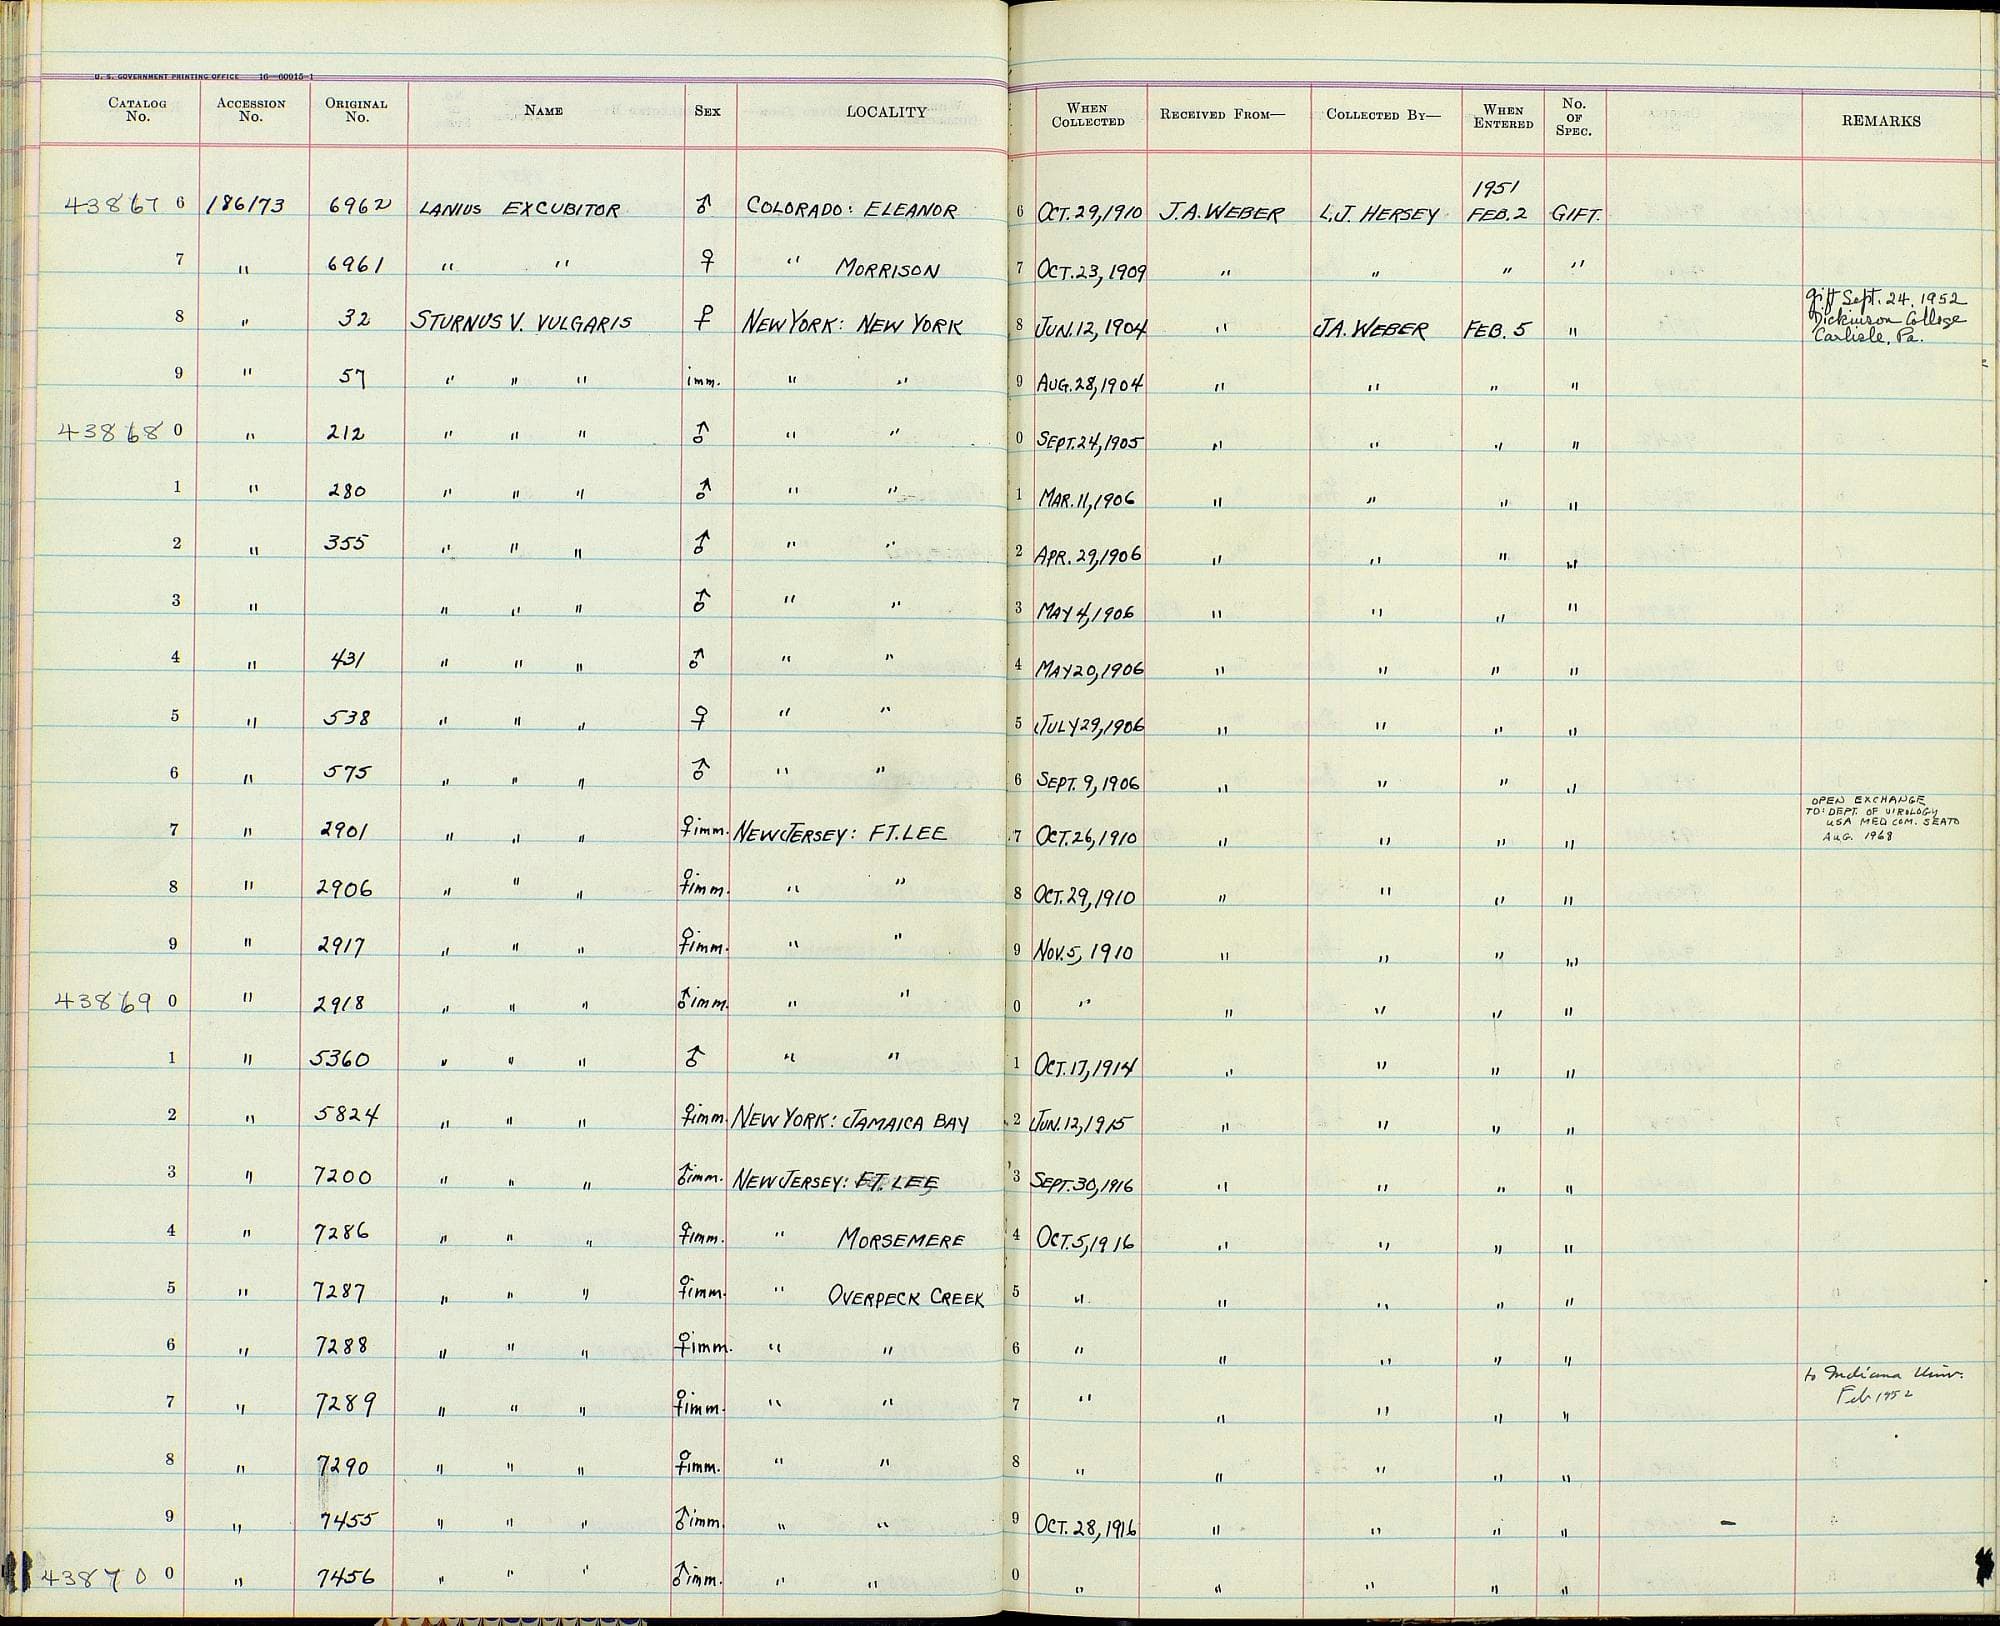 U. S. GOVERNMENT PRINTING OFFICE 16—60915-1
CATALOG No. ACCESSION No. ORIGINAL No. NAME SEX LOCALITY WHEN COLLECTED RECEIVED FROM— COLLECTED BY— WHEN ENTERED No. OF SPEC. REMARKS
43867 6 186173 6962 LANIUS EXCUBITOR ♂ COLORADO: ELEANOR 6 OCT. 29, 1910 J.A. WEBER L.J. HERSEY 1951 FEB. 2 GIFT.
7 " 6961 " " ♀ " MORRISON 7 OCT. 23, 1909 " " " "
8 " 32 STURNUS V. VULGARIS ♀ NEW YORK: NEW YORK 8 JUN. 12, 1904 " J.A. WEBER FEB. 5 " gift Sept. 24, 1952 Dickinson College Carlisle, Pa.
9 " 57 " " " imm. " " 9 AUG. 28, 1904 " " " "
43868 0 " 212 " " " ♂ " " 0 SEPT. 24, 1905 " " " "
1 " 280 " " " ♂ " " 1 MAR. 11, 1906 " " " "
2 " 355 " " " ♂ " " 2 APR. 29, 1906 " " " "
3 " " " " ♂ " " 3 MAY 4, 1906 " " " "
4 " 431 " " " ♂ " " 4 MAY 20, 1906 " " " "
5 " 538 " " " ♀ " " 5 JULY 29, 1906 " " " "
6 " 575 " " " ♂ " " 6 SEPT. 9, 1906 " " " "
7 " 2901 " " " ♀imm. NEW JERSEY: FT. LEE 7 OCT. 26, 1910 " " " " OPEN EXCHANGE TO: DEPT. OF VIROLOGY USA MED COM. SEATO AUG. 1968
8 " 2906 " " " ♀imm. " " 8 OCT. 29, 1910 " " " "
9 " 2917 " " " ♀imm. " " 9 NOV. 5, 1910 " " " "
43869 0 " 2918 " " " ♂imm. " " 0 " " " " "
1 " 5360 " " " ♂ " " 1 OCT. 17, 1914 " " " "
2 " 5824 " " " ♀imm. NEW YORK: JAMAICA BAY 2 JUN. 12, 1915 " " " "
3 " 7200 " " " ♂imm. NEW JERSEY: FT. LEE 3 SEPT. 30, 1916 " " " "
4 " 7286 " " " ♀imm. " MORSEMERE 4 OCT. 5, 1916 " " " "
5 " 7287 " " " ♀imm. " OVERPECK CREEK 5 " " " " "
6 " 7288 " " " ♀imm. " " 6 " " " " "
7 " 7289 " " " ♀imm. " " 7 " " " " " to Indiana Univ. Feb 1952
8 " 7290 " " " ♀imm. " " 8 " " " " "
9 " 7455 " " " ♂imm. " " 9 OCT. 28, 1916 " " " "
43870 0 " 7456 " " " ♂imm. " " 0 " " " " "